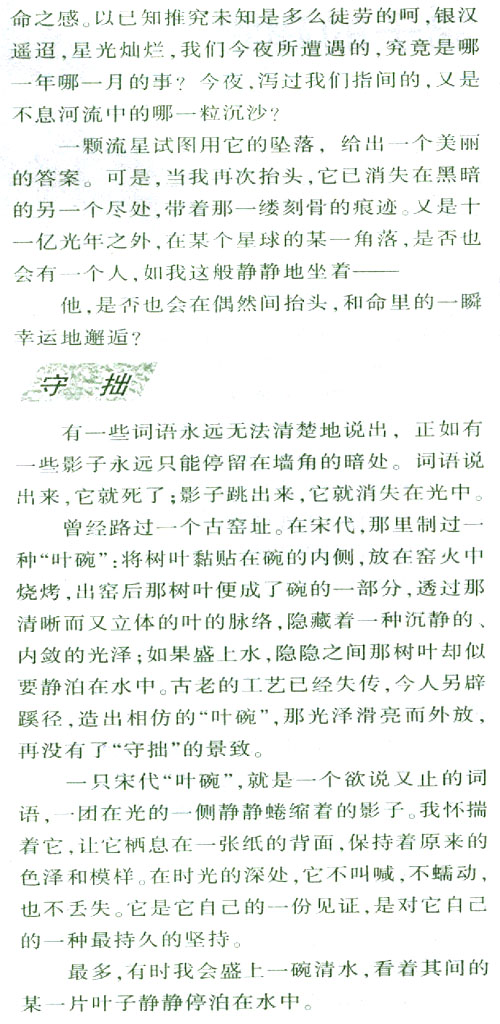 命之感。以已知推究未知是多么徒劳的呵,银汉
遥迢,星光灿烂,我们今夜所遭遇的,究竟是哪
一年哪一月的事?今夜,泻过我们指间的,又是
不息河流中的哪一粒沉沙?
一颗流星试图用它的坠落,给出一个美丽
的答案。可是,当我再次抬头,它已消失在黑暗
的另一个尽处,带着那一缕刻骨的痕迹。又是十
一亿光年之外,在某个星球的某一角落,是否也
会有一个人,如我这般静静地坐着——
他,是否也会在偶然间抬头,和命里的一瞬
幸运地邂逅?
守 拙
有一些词语永远无法清楚地说出,正如有
一些影子永远只能停留在墙角的暗处。词语说
出来,它就死了;影子跳出来,它就消失在光中。
曾经路过一个古窑址。在宋代,那里制过一
种“叶碗”:将树叶黏贴在碗的内侧,放在窑火中
烧烤,出窑后那树叶便成了碗的一部分,透过那
清晰而又立体的叶的脉络,隐藏着一种沉静的、
内敛的光泽;如果盛上水,隐隐之间那树叶却似
要静泊在水中。古老的工艺已经失传,今人另辟
蹊径,造出相仿的“叶碗”,那光泽滑亮而外放,
再没有了“守拙”的景致。
一只宋代“叶碗”,就是一个欲说又止的词
语,一团在光的一侧静静蜷缩着的影子。我怀揣
着它,让它栖息在一张纸的背面,保持着原来的
色泽和模样。在时光的深处,它不叫喊,不蠕动,
也不丢失。它是它自己的一份见证,是对它自己
的一种最持久的坚持。
最多,有时我会盛上一碗清水,看着其间的
某一片叶子静静停泊在水中。